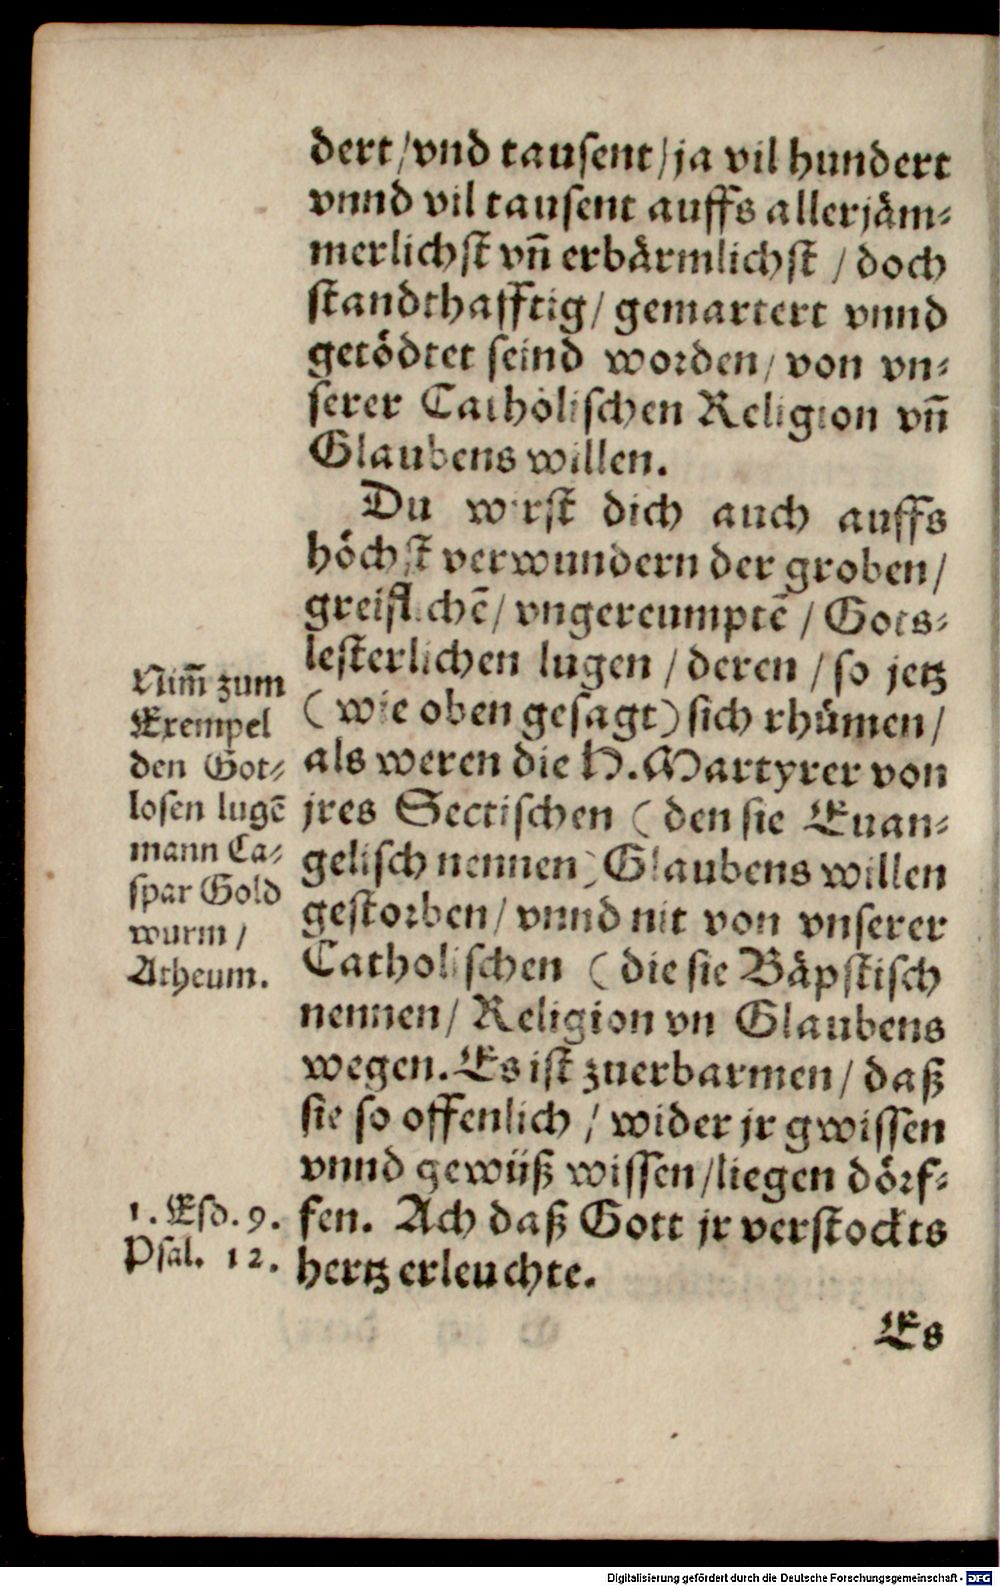 dert/vnd tausent/ja vil hundert
vnnd vil tausent auffs allerjäm⸗
merlichst vñ erbärmlichst / doch
standthafftig/ gemartert vnnd
getödtet seind worden/ von vn⸗
serer Catholischen Religion vñ
Glaubens willen.
Du wirst dich auch auffs
höchst verwundern der groben/
greiflichē/ vngereumptē / Gots⸗
lesterlichen lugen / deren / so jetz
(wie oben gesagt) sich rhümen/
als weren die H. Martyrer von
jres Sectischen (den sie Euan⸗
gelisch nennen) Glaubens willen
gestorben/ vnnd nit von vnserer
Catholischen (die sie Bäpstisch
nennen/ Religion vn Glaubens
wegen. Es ist zuerbarmen/ daß
sie so offenlich / wider jr gwissen
vnnd gewüß wissen/liegen dörf⸗
fen. Ach daß Gott jr verstockts
hertz erleuchte.
Nim̄ zum
Exempel
den Got⸗
losen lugē
mann Ca⸗
spar Gold
wurm /
Atheum.
1. Esd. 9.
Psal. 12.
Es
Digitalisierung gefördert durch die Deutsche Forschungsgemeinschaft - DFG